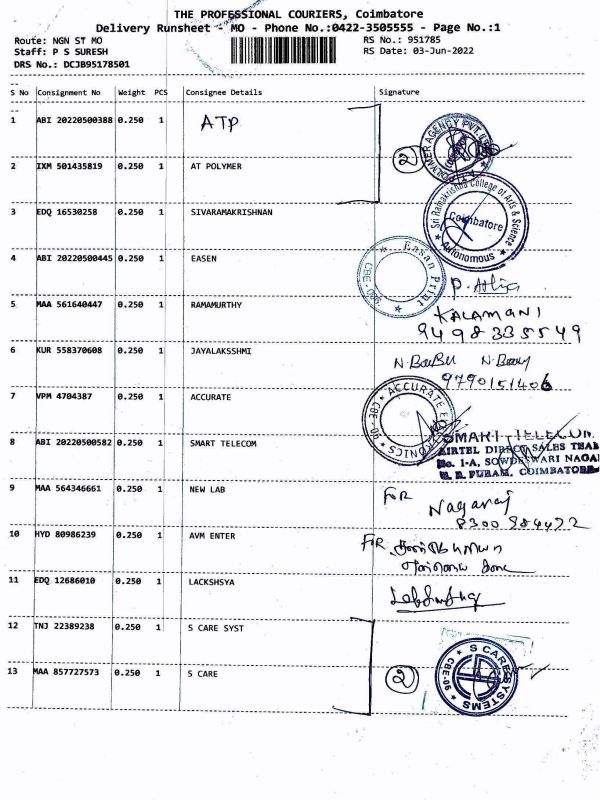 THE PROFESSIONAL COURIERS, Coimbatore
Delivery Runsheet - MO - Phone No.:0422-3505555 - Page No.:1
Route: NGN ST MO
RS No.: 951785
Staff: P S SURESH
RS Date: 03-Jun-2022
DRS No.: DCJB95178501
S No Consignment No Weight PCS Consignee Details Signature
1 ABI 20220500388 0.250 1 ATP
2 IXM 501435819 0.250 1 AT POLYMER
2
POLYMER AGENCY PVT.
3 EDQ 16530258 0.250 1 SIVARAMAKRISHNAN
Sri Ramakrishna College of Arts & Science
Coimbatore
Autonomous
4 ABI 20220500445 0.250 1 EASEN
Easan Print
CBE-006
5 MAA 561640447 0.250 1 RAMAMURTHY
KALAMANI
9498335549
6 KUR 558370608 0.250 1 JAYALAKSSHMI
N. Babu
9790151406
7 VPM 4704387 0.250 1 ACCURATE
ACCURATE
CBE - 06
8 ABI 20220500582 0.250 1 SMART TELECOM
SMART TELECOM
AIRTEL DIRECT SALES TEAM
No. 1-A, SOWDESWARI NAGAR
COIMBATORE
9 MAA 564346661 0.250 1 NEW LAB
FOR
Nagaraj
8300984472
10 HYD 80986239 0.250 1 AVM ENTER
FOR
11 EDQ 12686010 0.250 1 LACKSHSYA
12 TNJ 22389238 0.250 1 S CARE SYST
13 MAA 857727573 0.250 1 S CARE
2
S CARE SYSTEMS
CBE-06